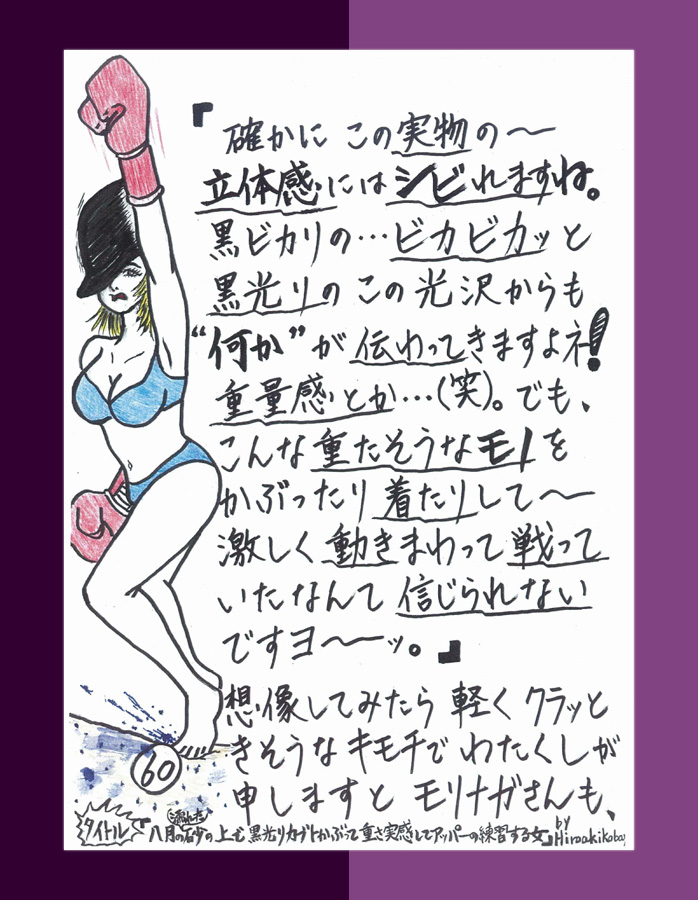 『
確かに この実物の〜
立体感にはシビれますね。
黒ビカリの…ビカビカッと
黒光りの この 光沢からも
“何か”が 伝わってきますよネ!
重量感とか…(笑)。でも、
こんな 重たそうなモノを
かぶったり 着たりして〜
激しく 動きまわって 戦って
いたなんて 信じられない
ですヨ〜〜ッ。』
想像してみたら 軽く クラッと
きそうな キモチで わたくしが
申しますと モリナガさんも、
60
タイトル
『八月の砂の上で黒光りカブトかぶって重さ実感してアッパーの練習する女』
by Hiroakikoboy